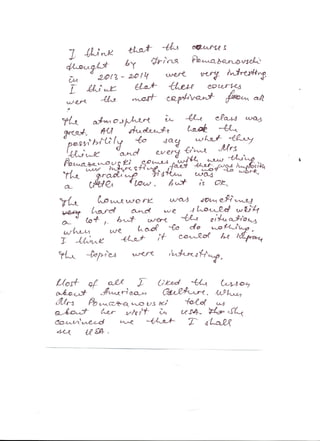 I think that the courses
thought by Irina
in 2013 - 2014 were very
I think that these courses
were the most captivant from all
The atmosphere in the class was
great. All students had the
possibility to say what they
think and every time Mrs
comes with new thing
fact that
The grading sistem was
a little low, but is OK.
The homework was sometimes
very hard and we should write
a lot, but were the situations
when we had to do nothing.
I think that it could be
The topics were interesting.
Most of all I liked the lesson
about American Culture. When
Mrs told us
about her visit in USA. she
convinced me that I shall
see USA.